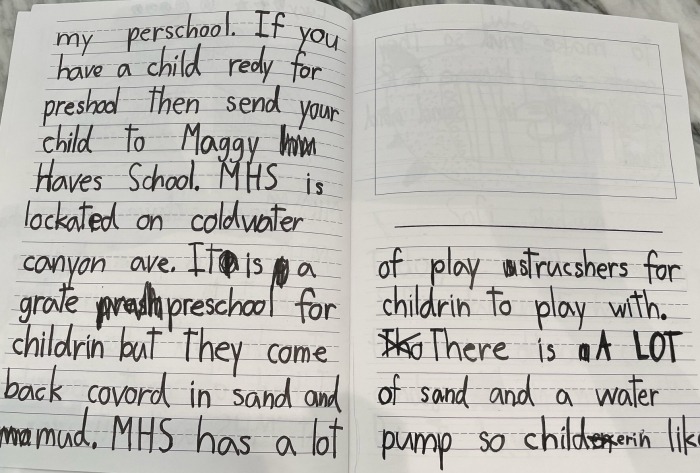 my perschool. If you
have a child redy for
preshool then send your
child to Maggy
Haves School. MHS is
lockated on coldwater
canyon ave. It is a
grate preschool for
childrin but they come
back covord in sand and
mud. MHS has a lot
of play strucshers for
childrin to play with.
There is A LOT
of sand and a water
pump so childerin like